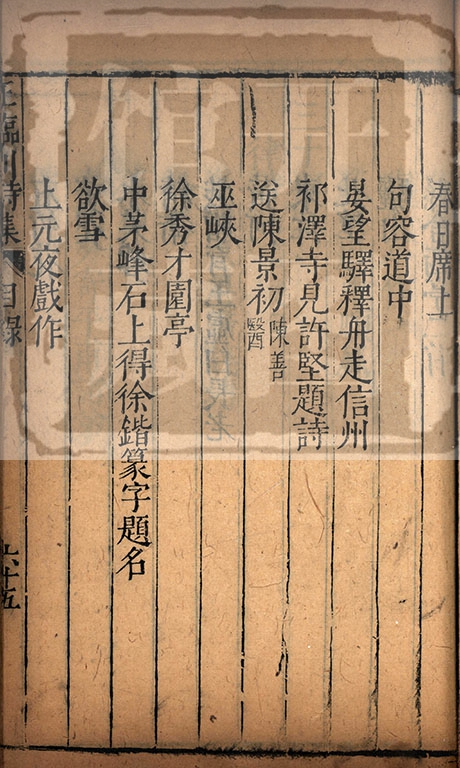 春日席上
句容道中
晏望驛釋舟走信州
祁澤寺見許堅題詩
送陳景初陳善醫
巫峽
徐秀才園亭
中茅峰石上得徐鍇篆字題名
欲雪
上元夜戲作
王臨川詩集 目錄 六十五